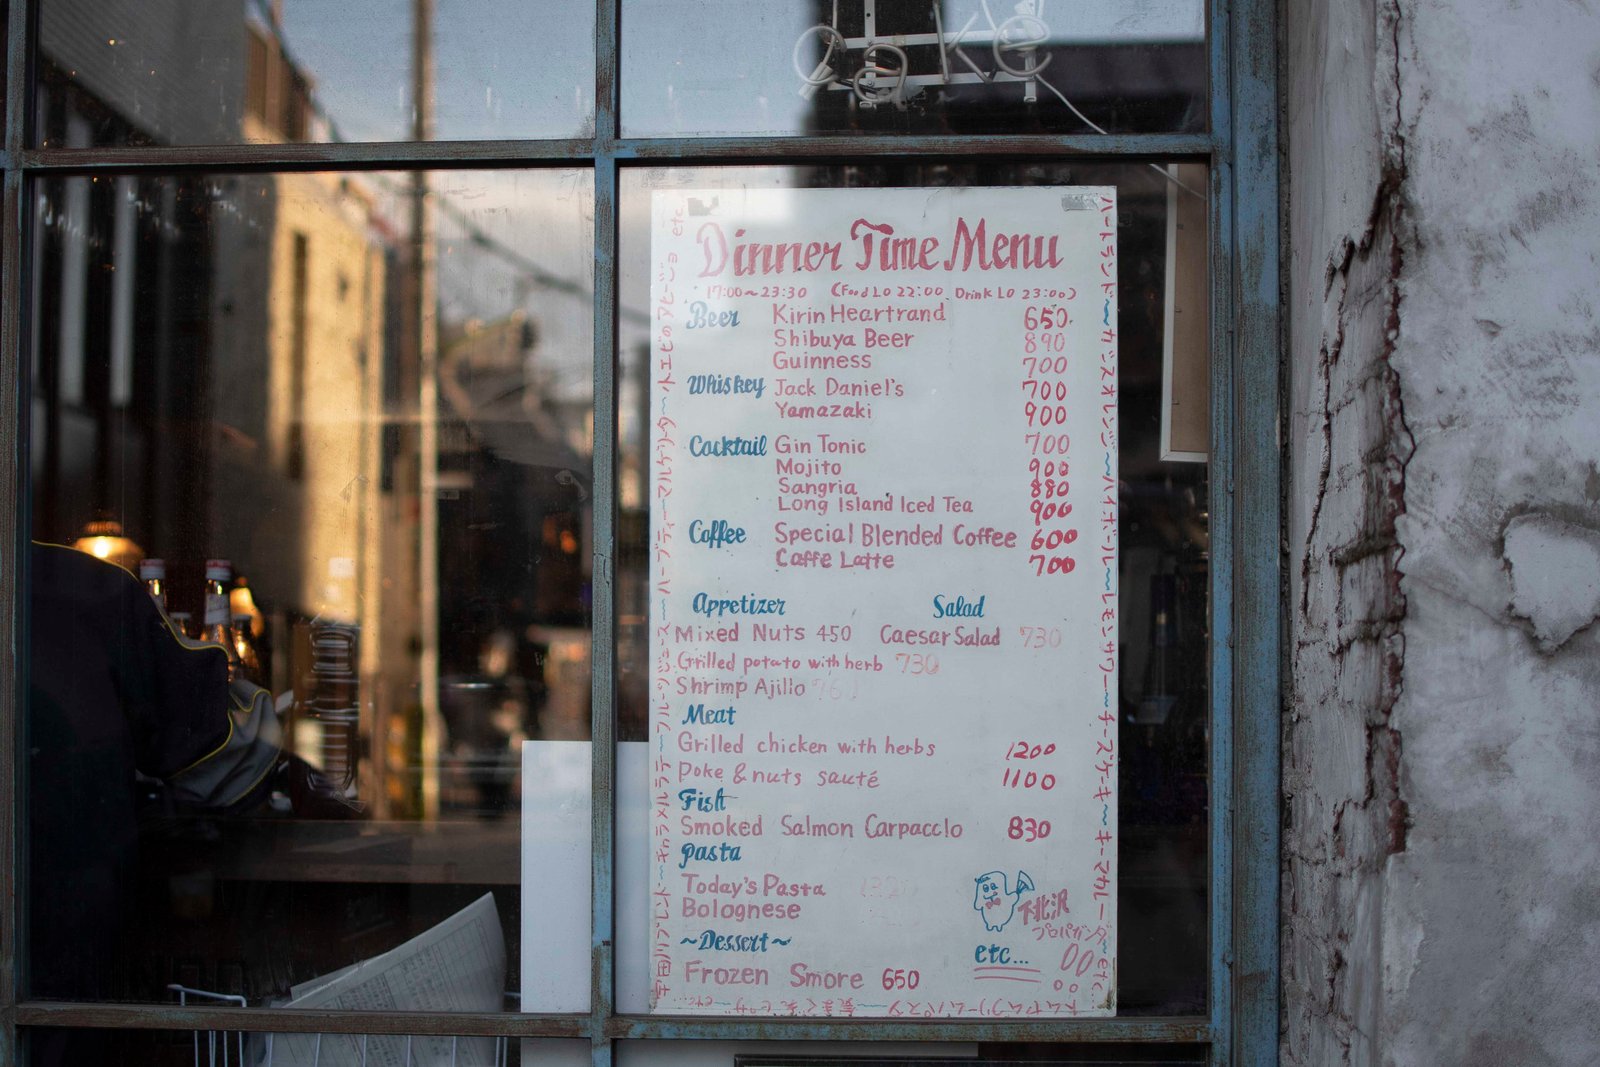 Dinner Time Menu
17:00~23:30 (Food LO 22:00 Drink LO 23:00)
Beer Kirin Heartrand 650
Shibuya Beer 890
Guinness 700
Whiskey Jack Daniel's 700
Yamazaki 900
Cocktail Gin Tonic 700
Mojito 900
Sangria 880
Long Island Iced Tea 900
Coffee Special Blended Coffee 600
Caffe Latte 700
Appetizer Salad
Mixed Nuts 450 Caesar Salad 730
Grilled potato with herb 730
Shrimp Ajillo 760
Meat
Grilled chicken with herbs 1200
Poke & nuts sauté 1100
Fish
Smoked Salmon Carpacclo 830
Pasta
Today's Pasta
Bolognese
~Dessert~
Frozen Smore 650
下北沢
プロパガンダ
etc...
宇田川ブレンド〜キャラメルラテ〜フルーツジュース〜ハーブティー〜マルゲリータ〜小エビのアヒージョ etc
ハートランド〜カシスオレンジ〜ハイボール〜レモンサワー〜チーズケーキ〜キーマカレー etc